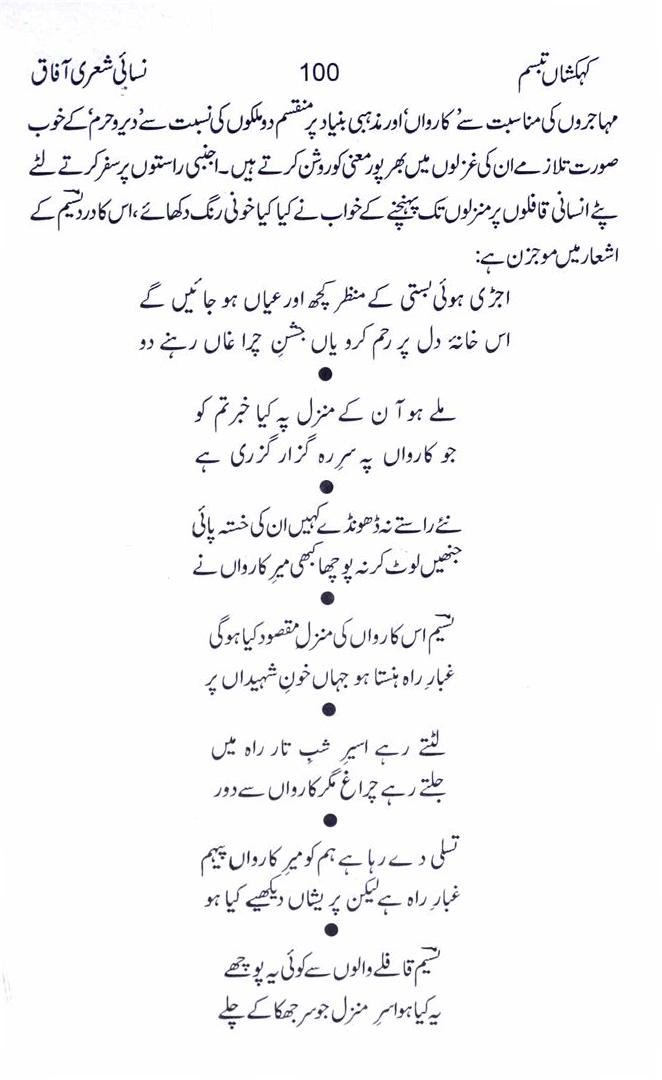 کہکشاں تبسم 100 نسائی شعری آفاق
مہاجروں کی مناسبت سے 'کارواں' اور مذہبی بنیاد پر منقسم دو ملکوں کی نسبت سے 'دیر و حرم' کے خوب
صورت تلازمے ان کی غزلوں میں بھر پور معنی کو روشن کرتے ہیں۔ اجنبی راستوں پر سفر کرتے لٹے
پٹے انسانی قافلوں پر منزلوں تک پہنچنے کے خواب نے کیا کیا خونی رنگ دکھائے، اس کا درد نسیم کے
اشعار میں موجزن ہے:
اجڑی ہوئی بستی کے منظر کچھ اور عیاں ہو جائیں گے
اس خانۂ دل پر رحم کرو یاں جشنِ چراغاں رہنے دو
●
ملے ہو آن کے منزل پہ کیا خبر تم کو
جو کارواں پہ سرِ رہ گزار گزری ہے
●
نئے راستے نہ ڈھونڈے کہیں ان کی خستہ پائی
جنھیں لوٹ کر نہ پوچھا کبھی میرِ کارواں نے
●
نسیم اس کارواں کی منزلِ مقصود کیا ہوگی
غبارِ راہ ہنستا ہو جہاں خونِ شہیداں پر
●
لٹتے رہے اسیرِ شبِ تار راہ میں
جلتے رہے چراغ مگر کارواں سے دور
●
تسلی دے رہا ہے ہم کو میرِ کارواں پیہم
غبارِ راہ ہے لیکن پریشاں دیکھیے کیا ہو
●
نسیم قافلے والوں سے کوئی یہ پوچھے
یہ کیا ہوا سرِ منزل جو سر جھکا کے چلے